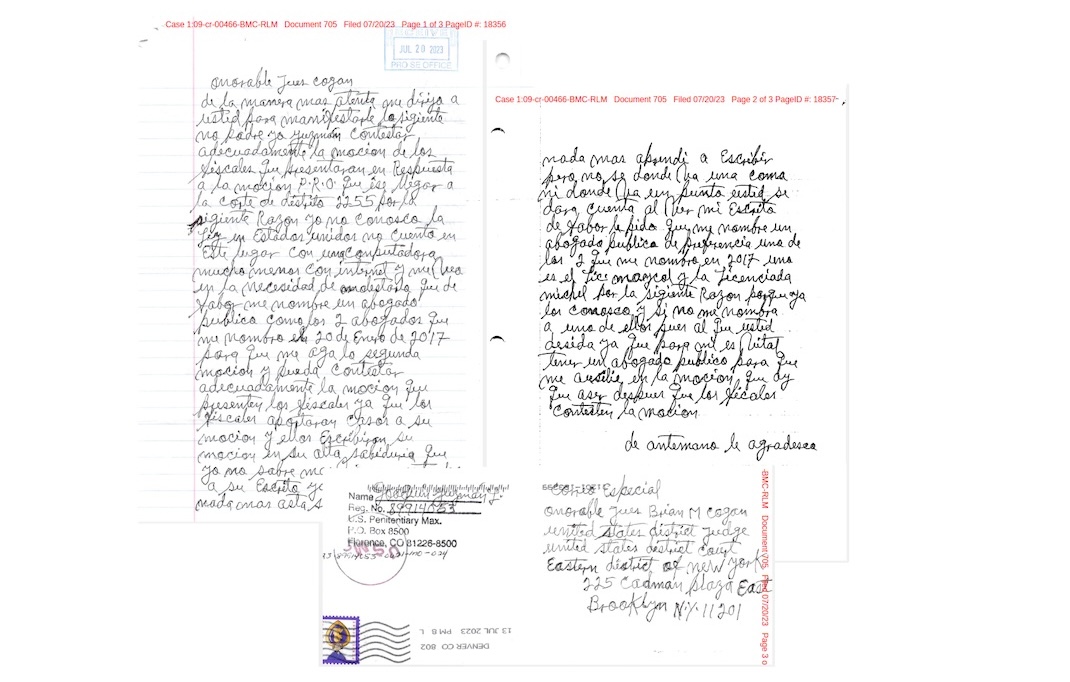 Case 1:09-cr-00466-BMC-RLM Document 705 Filed 07/20/23 Page 1 of 3 PageID #: 18356
JUL 20 2023
PRO SE OFFICE
onorable Jues cogan
de la manera mas atenta me dirijo a
usted para manifestarle lo sigiente
no sabre yo guzmán contestar
adecuadamente la mocion de los
fiscales que presentaran en Respuesta
a la mocion P.R.O. que ise llegar a
la corte de distrito 2255 por la
sigiente Razon yo no conosco la
ley en Estados unidos no cuento en
Este lugar con una computadora
mucho menos con internet y me veo
en la necesidad de molestarlo que de
fabor me nombre un abogado
publico como los 2 abogados que
me nombro en 20 de Enero de 2017
para que me aga la segunda
mocion y pueda contestar
adecuadamente la mocion que
presenten los fiscales ya que los
fiscales aportaran casos a su
mocion y ellos Escribiran su
mocion en su alta sabiduria que
yo no sabre
a su Escrito
nada mas
Case 1:09-cr-00466-BMC-RLM Document 705 Filed 07/20/23 Page 2 of 3 PageID #: 18357
nada mas aprendi a Escribir
pero no se donde va una coma
ni donde va un punto usted se
dara cuenta al ver mi Escrito
de fabor le pido que me nombre un
abogado publico de preferencia uno de
los 2 que me nombro en 2017 uno
es el Lic marcol y la licenciada
michel por la sigiente Razon porque ya
los conosco y si no me nombra
a uno de ellos pues al que usted
desida ya que para mi es vital
tener un abogado publico para que
me auxilie en la mocion que ay
que aser despues que los ficales
contesten la mocion
de antemano le agradesco
Name Joaquin Guzman L.
Reg. No. 89914053
U.S. Penitentiary Max.
P.O. Box 8500
Florence, CO 81226-8500
Especial
onorable Jues Brian M cogan
united states district judge
united states district court
Eastern district of new york
225 Cadman plaza East
Brooklyn N.Y. 11201
13 JUL 2023 PM 8 L
DENVER CO 802
-BMC-RLM Document 705 Filed 07/20/23 Page 3 o